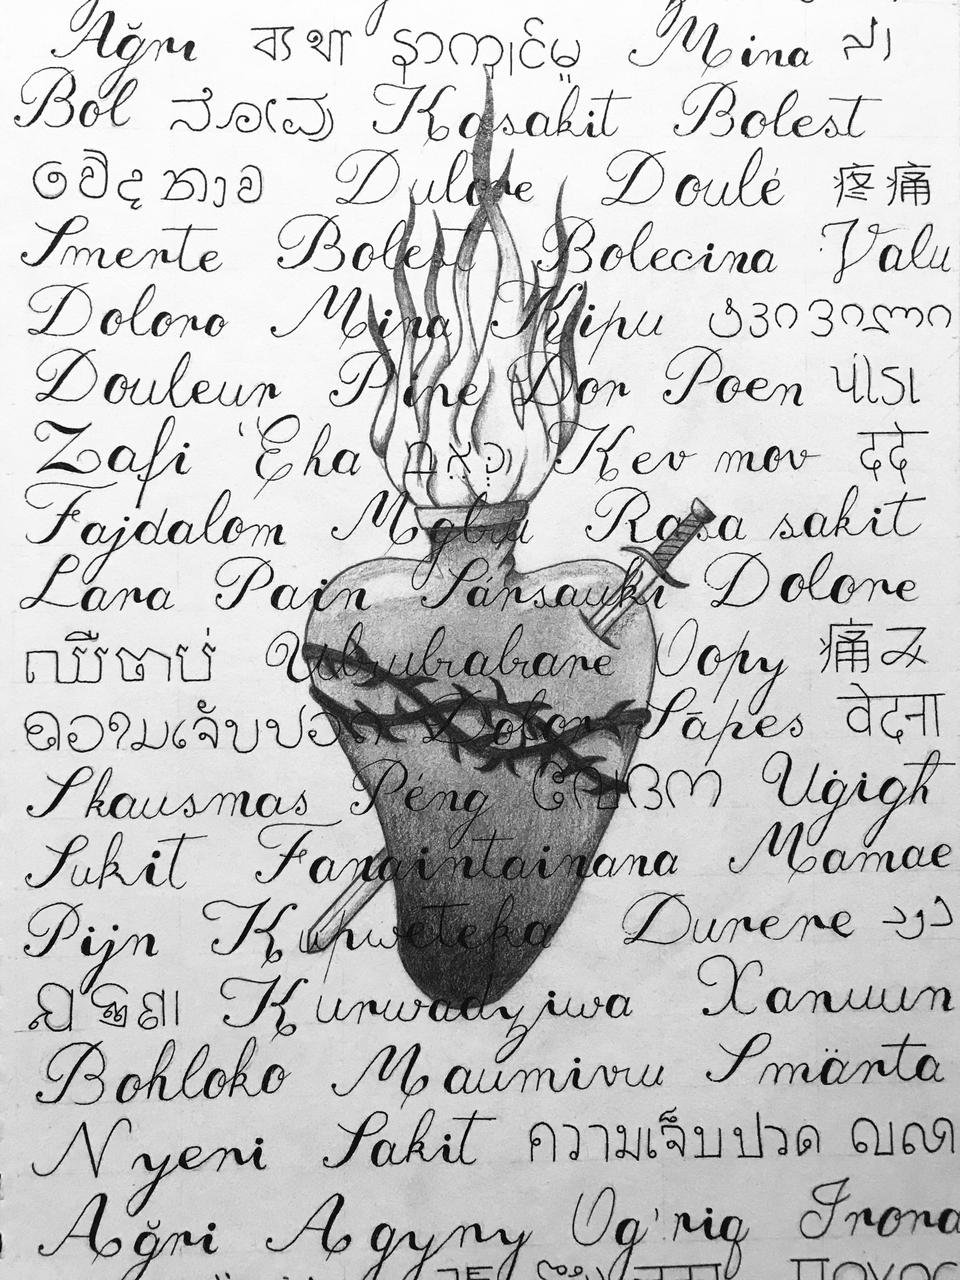 Ağrı ব্যথা နာကျင်မှု Mina
Bol ನೋವು Kasakit Bolest
වේදනාව Dulore Doulè 疼痛
Smerte Bolest Bolecina Valu
Doloro Mina Kipu ტკივილი
Douleur Pine Dor Poen પીડા
Zafi ʻEha כאב Kev mov दर्द
Fajdalom Mgbu Rasa sakit
Lara Pain Sársauki Dolore
ឈឺចាប់ Ububabare Oopy 痛み
ຄວາມເຈັບປວດ Dolor Sāpes वेदना
Skausmas Péng വേദന Uġigħ
Sukit Fanaintainana Mamae
Pijn Kupweteka Durere درد
ਦਰਦ Kurwadziwa Xanuun
Bohloko Maumivu Smärta
Nyeri Sakit ความเจ็บปวด வலி
Ağri Agyry Og'riq Irora